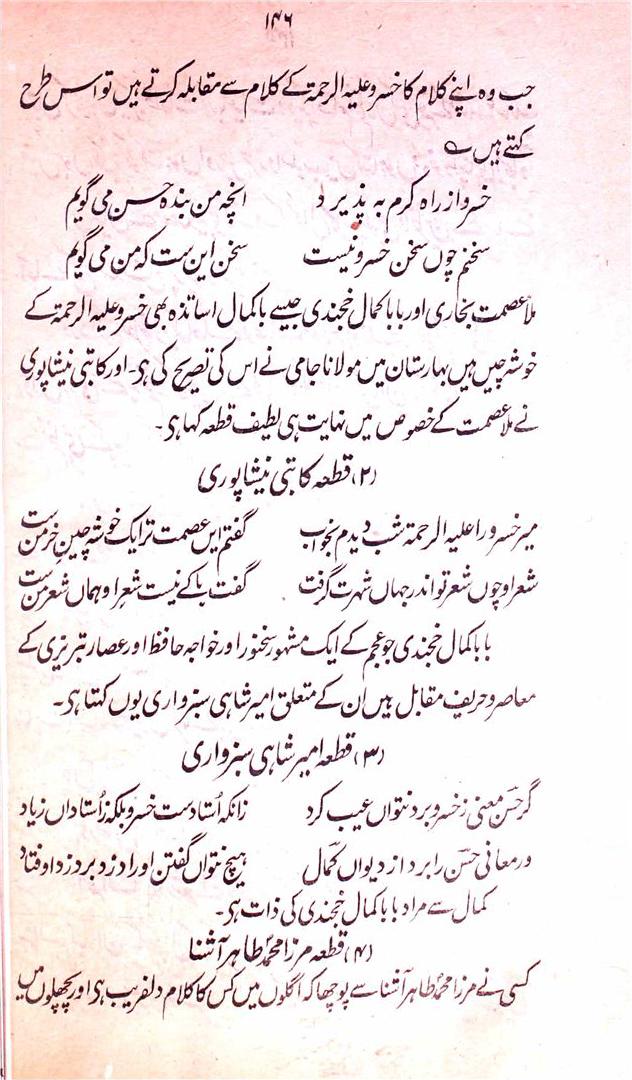 ۱۴۶
جب وہ اپنے کلام کا خسرو علیہ الرحمۃ کے کلام سے مقابلہ کرتے ہیں تو اس طرح
کہتے ہیں ؎
خسرو از راہ کرم بہ پذیرد انچہ من بندہ حسن می گویم
سخنم چوں سخن خسرو نیست سخن این ست کہ من می گویم
ملا عصمت بخاری اور بابا کمال خجندی جیسے باکمال اساتذہ بھی خسرو علیہ الرحمۃ کے
خوشہ چیں ہیں بہارستان میں مولانا جامی نے اس کی تصریح کی ہی۔ اور کاتبی نیشاپوری
نے ملا عصمت کے خصوص میں نہایت ہی لطیف قطعہ کہا ہی۔
(۲) قطعہ کاتبی نیشاپوری
میر خسرو را علیہ الرحمۃ شب دیدم بخواب گفتم ایں عصمت ترا یک خوشہ چین خرمن ست
شعر او چوں شعر تو اندر جہاں شہرت گرفت گفت باکے نیست شعرِ او ہماں شعر من ست
بابا کمال خجندی جو عجم کے ایک مشہور سخنور اور خواجہ حافظ اور عصار تبریزی کے
معاصر و حریف مقابل ہیں ان کے متعلق امیر شاہی سبزواری یوں کہتا ہی۔
(۳) قطعہ امیر شاہی سبزواری
گر حسن معنی ز خسرو برد نتواں عیب کرد زانکہ اُستادست خسرو بلکہ ز اُستاداں زیاد
ور معانی حسن را برد از دیواں کمال ہیچ نتواں گفتن او را دزد بر دزد اوفتاد
کمال سے مراد بابا کمال خجندی کی ذات ہی۔
(۴) قطعہ مرزا محمد طاہر آشنا
کسی نے مرزا محمد طاہر آشنا سے پوچھا کہ اگلوں میں کس کا کلام دلفریب ہی اور پچھلوں میں